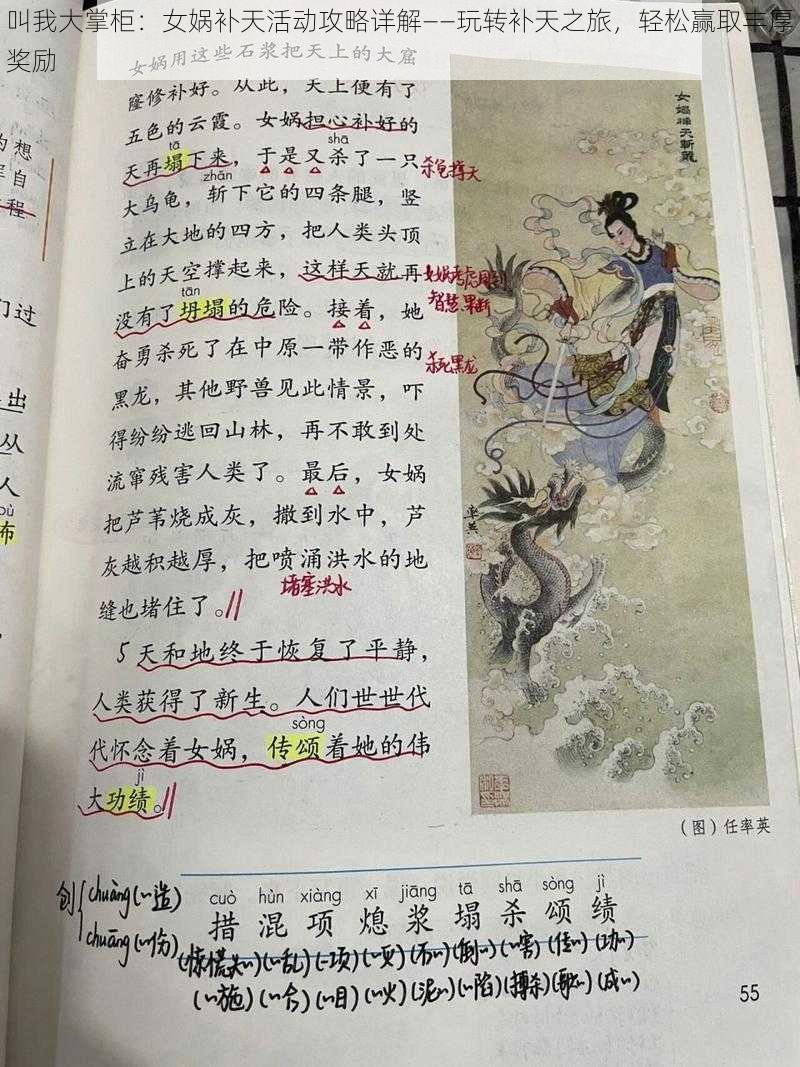 叫我大掌柜：女娲补天活动攻略详解——玩转补天之旅，轻松赢取丰厚
奖励
女娲用这些石浆把天上的大窟
窿修补好。从此，天上便有了
五色的云霞。女娲担心补好的
tā shā
天再塌下来，于是又杀了一只
杀龟撑天
zhǎn
大乌龟，斩下它的四条腿，竖
立在大地的四方，把人类头顶
上的天空撑起来，这样天就再
女娲考虑周到
智慧、果断
tān
没有了坍塌的危险。接着，她
奋勇杀死了在中原一带作恶的
杀死黑龙
黑龙，其他野兽见此情景，吓
得纷纷逃回山林，再不敢到处
流窜残害人类了。最后，女娲
把芦苇烧成灰，撒到水中，芦
灰越积越厚，把喷涌洪水的地
堵塞洪水
缝也堵住了。
5 天和地终于恢复了平静，
人类获得了新生。人们世世代
sòng
代怀念着女娲，传颂着她的伟
jì
大功绩。
女娲补天斩龙
率英
（图）任率英
创 chuàng(〃造)
chuāng(〃伤)
cuò hùn xiàng xī jiāng tā shā sòng jì
措 混 项 熄 浆 塌 杀 颂 绩
(惊慌失〃)(〃乱)(一项)(〃灭)(石〃)(倒〃)(〃害)(传〃)(功〃)
(〃施)(〃合)(〃目)(〃火)(泥〃)(〃陷)(搏杀)(歌〃)(成〃)
55
想
自
程
们过
出
从
人
bù
布